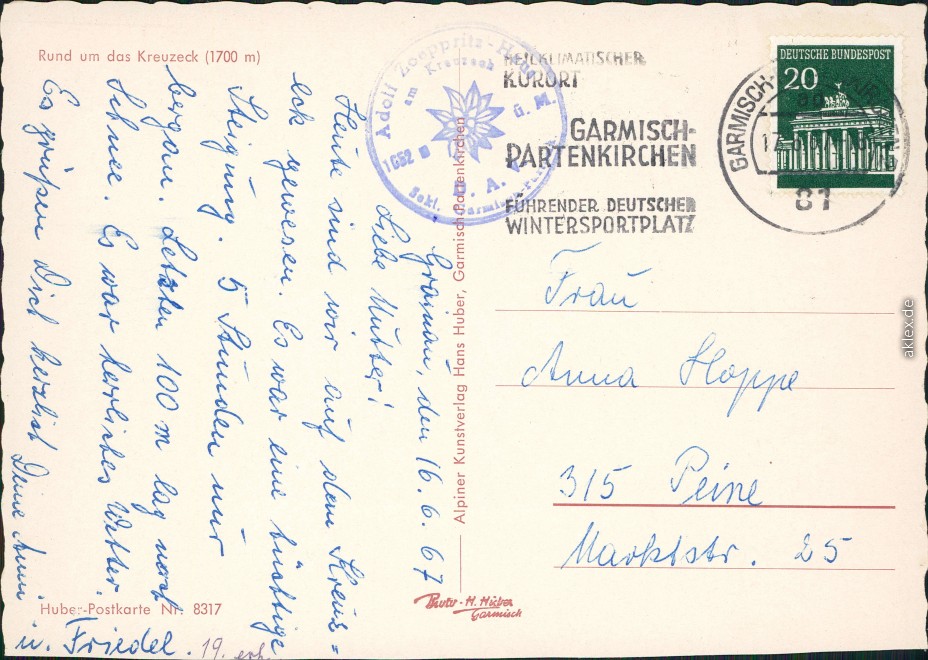 Rund um das Kreuzeck (1700 m)
Grainau, den 16. 6. 67
Liebe Mutter!
Heute sind wir auf dem Kreuz=
eck gewesen. Es war eine tüchtige
Steigung. 5 Stunden nur
bergan. Letzten 100 m lag noch
Schnee. Es war herrliches Wetter.
Es grüßen Dich herzlich Deine Anni
u. Friedel. 19. erh.
Huber-Postkarte Nr. 8317
Alpiner Kunstverlag Hans Huber, Garmisch-Partenkirchen
Photo-H. Huber
Garmisch
Adolf Zoeppritz-Haus
am Kreuzeck
1652 m ü. M.
Sekt. Garmisch-
HEILKLIMATISCHER
KURORT
GARMISCH-
PARTENKIRCHEN
FÜHRENDER DEUTSCHER
WINTERSPORTPLATZ
GARMISCH-
81
DEUTSCHE BUNDESPOST
20
Frau
Anna Hoppe
315 Peine
Marktstr. 25
aklex.de